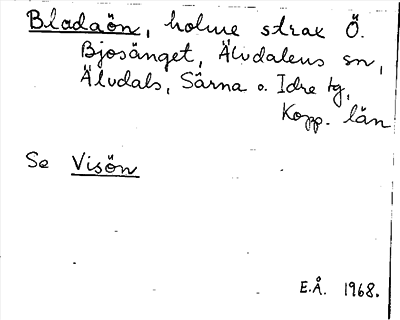 Bladaön, holme strax Ö.
Bjosänget, Älvdalens sn,
Älvdals, Särna o. Idre tg,
Kopp. län
Se Visön
E.Å. 1968.